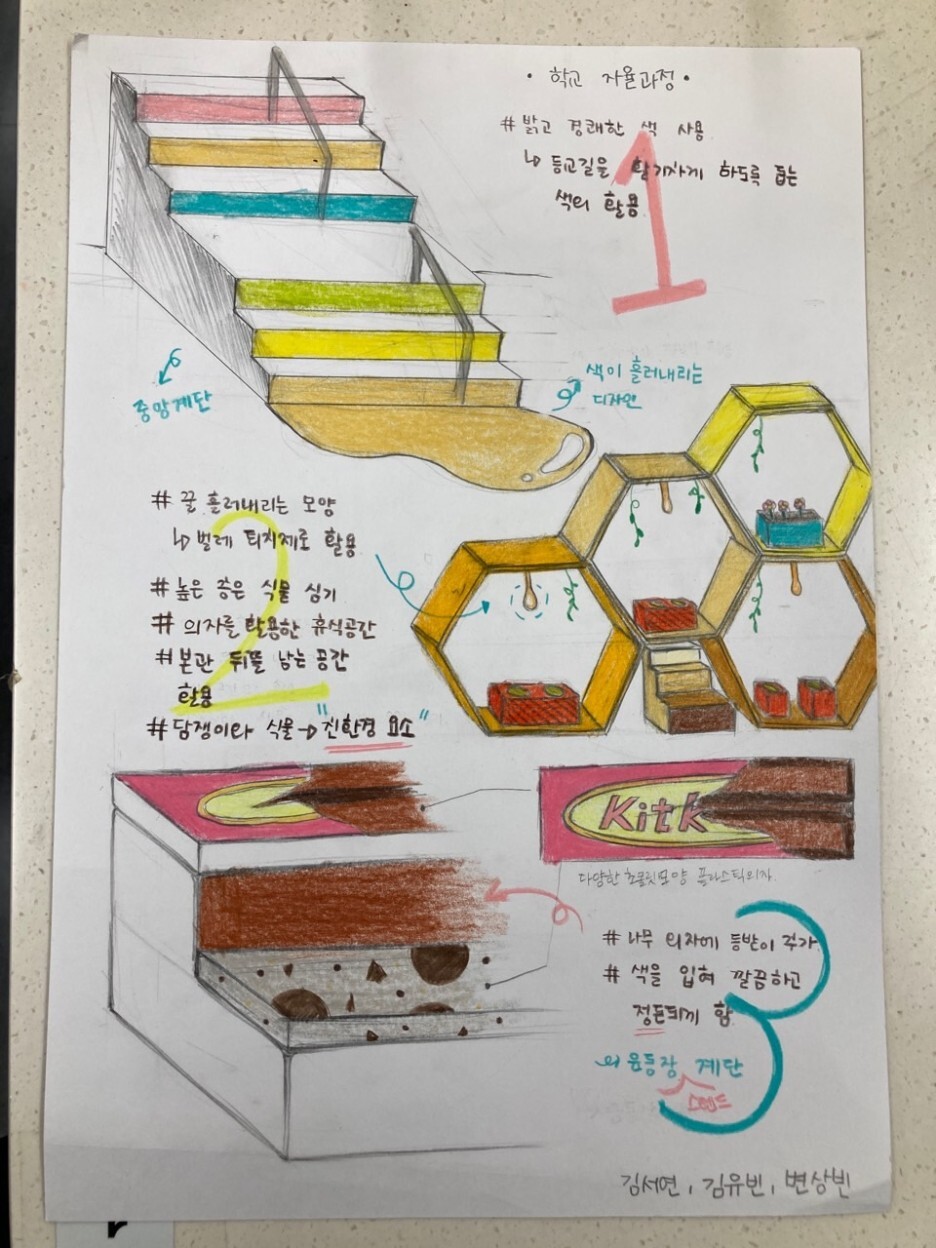 • 학교 자율과정 •
# 밝고 경쾌한 색 사용
↳ 등교길을 활기차게 하도록 돕는
색의 활용
1
중앙계단
색이 흘러내리는
디자인
# 꿀 흘러내리는 모양
↳ 벌레 퇴치제로 활용
# 높은 층은 식물 심기
# 의자를 활용한 휴식공간
# 본관 뒤뜰 남는 공간
활용
# 담쟁이라 식물→"친환경 요소"
2
Kitk
다양한 초콜릿모양 플라스틱의자.
# 나무 의자에 등받이 추가
# 색을 입혀 깔끔하고
정돈되게 함
운동장 계단
스탠드
3
김서연, 김유빈, 변상빈